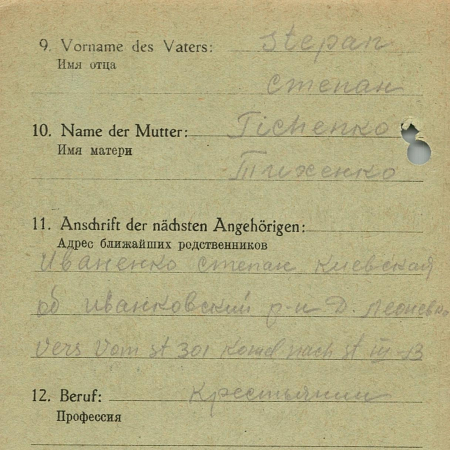 9. Vorname des Vaters: Stepan
Имя отца
Степан
10. Name der Mutter: Tichenko
Имя матери
Тихенко
11. Anschrift der nächsten Angehörigen:
Адрес ближайших родственников
Иваненко Степан Киевская
об Иванковский р-н Д.
Vers Vom St 301 Komd nach St III
12. Beruf: Крестьянин
Профессия